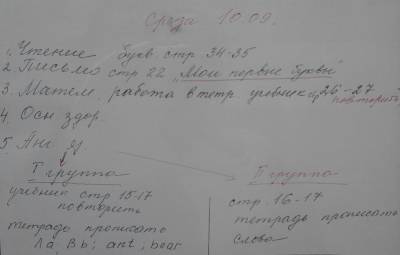 Среда 10.09.
1. Чтение букв. стр 34-35
2. Письмо стр 22 „Мои первые буквы"
3. Матем. работа в тетр. учебник стр 26-27
повторить
4. Осн. здор.
5. Анг. яз.
I группа
учебник стр 15-17
повторить
тетрадь прописать
Aa Bb; ant; bear
II группа
стр. 16-17
тетрадь прописать
слова